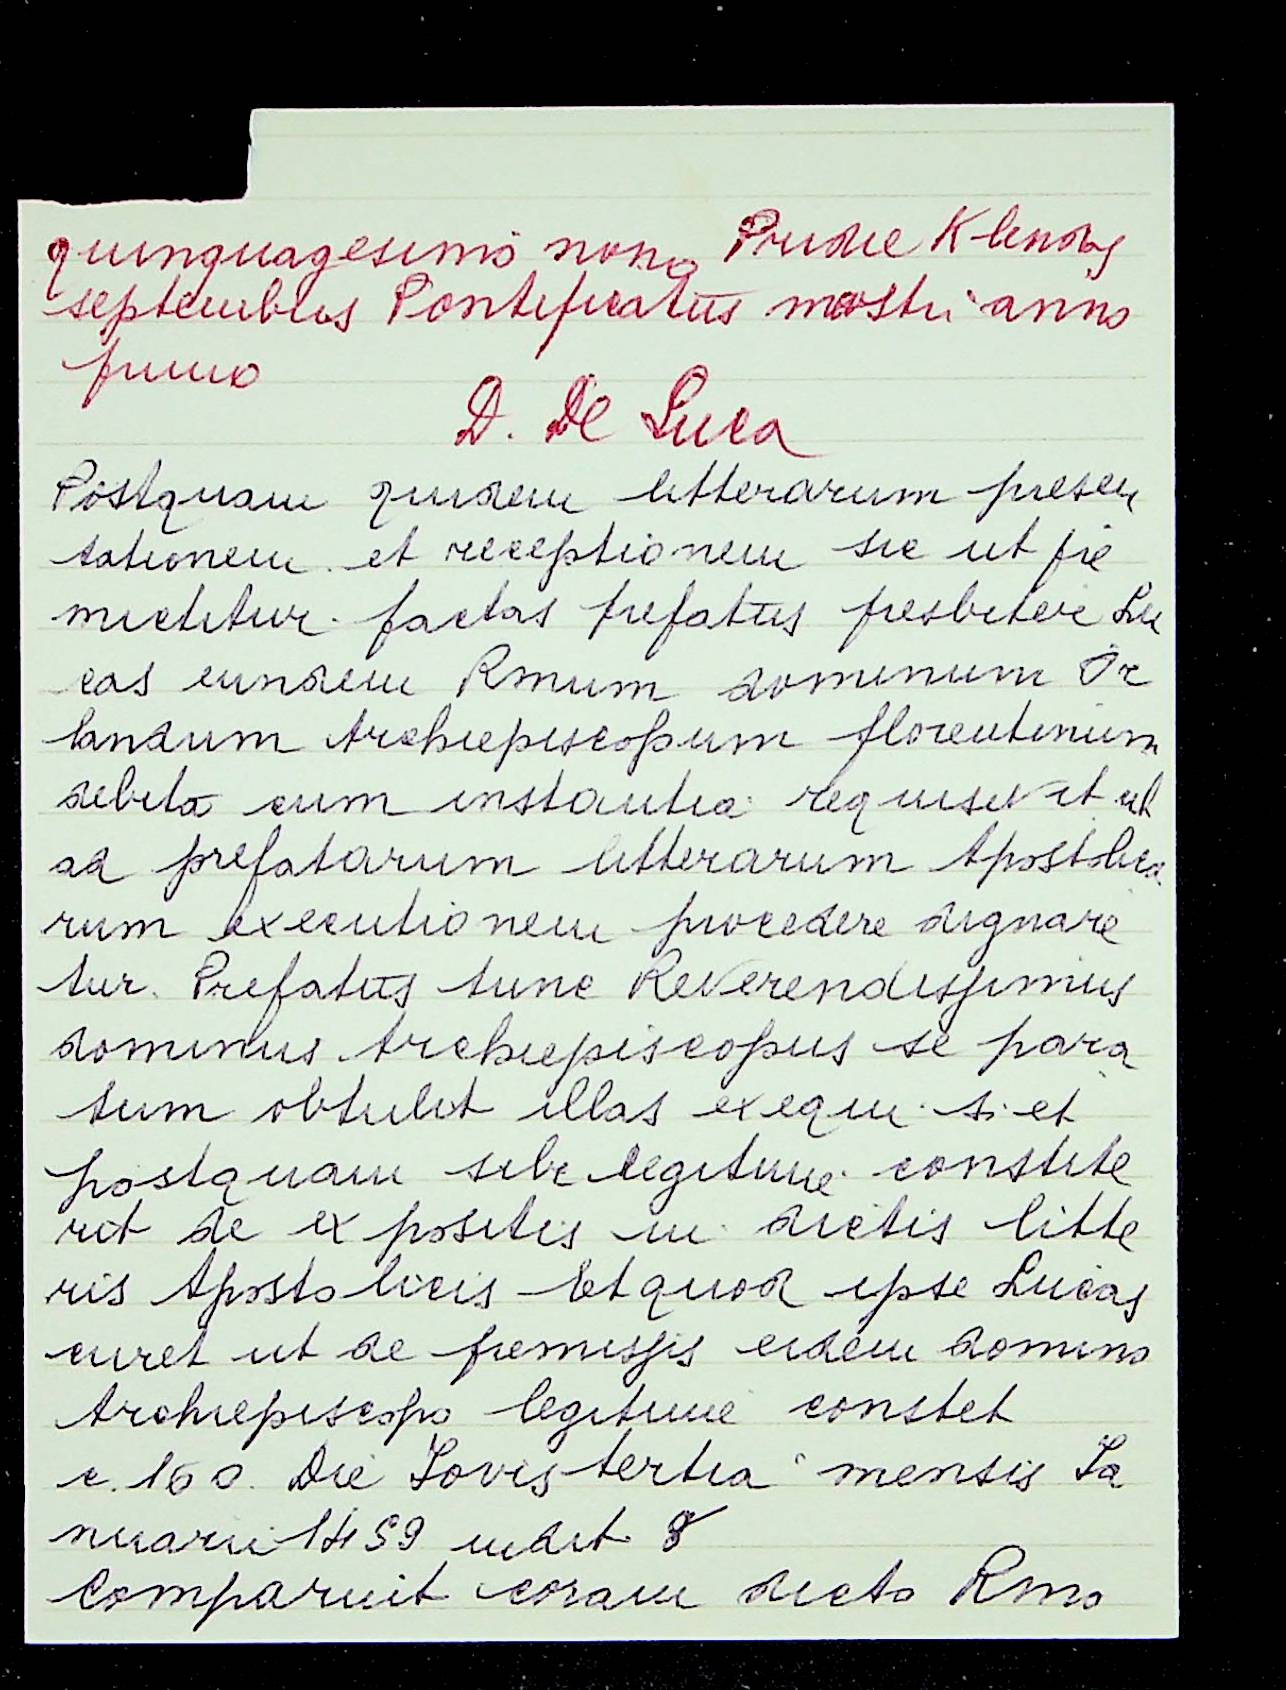 quinquagesimo nono Pridie Klendas
septembris Pontificatus nostri anno
primo
D. De Luca
Postquam quidem litterarum presen
tationem et receptionem sic ut pre
mictitur factas prefatus presbiter Lu
cas eundem Rmum dominum Or
landum Archiepiscopum florentinum
debita cum instantia requisivit ut
ad prefatarum litterarum Apostolica
rum executionem procedere dignare
tur. Prefatus tunc Reverendissimus
dominus Archiepiscopus se para
tum obtulit illas exequi si et
postquam sibi legitime constite
rit de expositis in dictis litte
ris Apostolicis Et quod ipse Lucas
curet ut de premissis eidem domino
Archiepiscopo legitime constet
c. 160. Die Iovis tertia mensis Ia
nuarii 1459 indit 8
Comparuit coram dicto Rmo